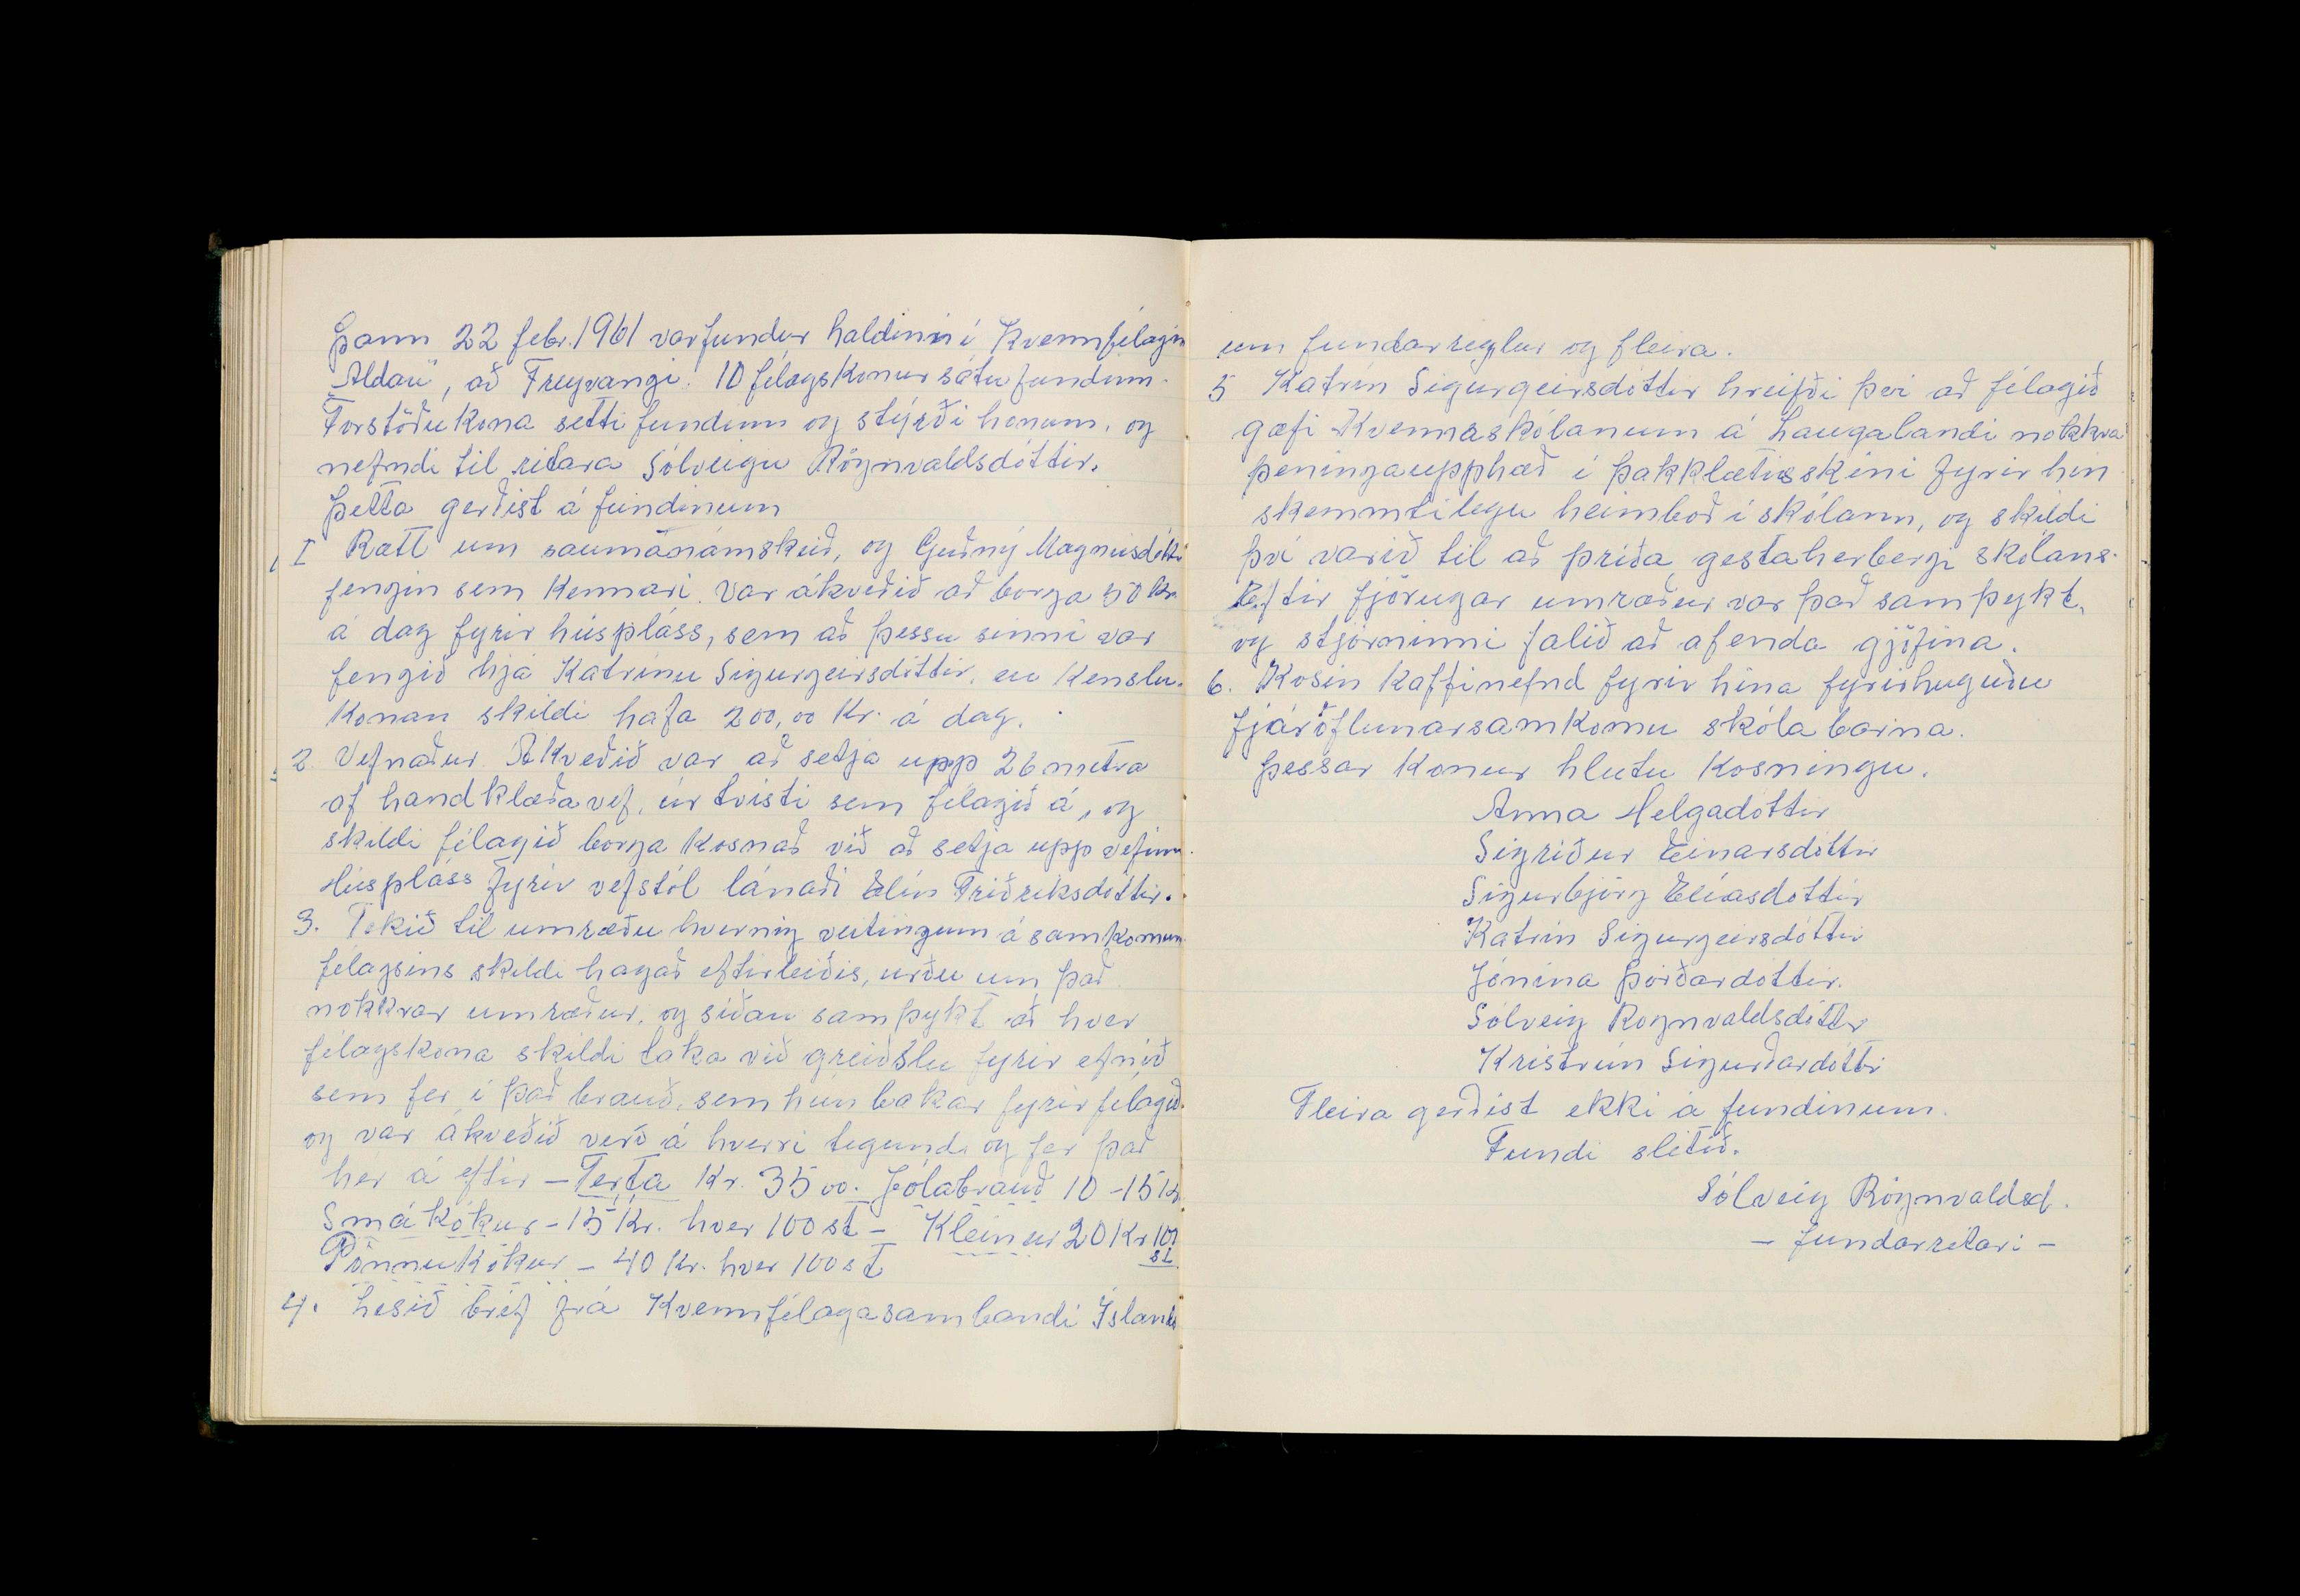 Þann 22 febr. 1961 var fundur haldinn í Kvennfélagin
„Aldan", að Freyvangi. 10 félagskonur sátu fundinn.
Forstöðukona setti fundinn og stýrði honum, og
nefndi til ritara Sólveigu Rögnvaldsdóttir.
Þetta gerðist á fundinum
I Rætt um saumanámskeið, og Guðný Magnúsdóttir
fengin sem kennari. Var ákveðið að borga 50 kr.
á dag fyrir húspláss, sem að þessu sinni var
fengið hjá Katrínu Sigurgeirsdóttir, en kenslu-
konan skildi hafa 200,00 kr. á dag.
2 Vefnaður. Ákveðið var að setja upp 26 metra
af handklæðavef, úr tvisti sem félagið á, og
skildi félagið borga kosnað við að setja upp vefinn.
Húspláss fyrir vefstól lánaði Elín Friðriksdóttir.
3. Tekið til umræðu hvernig veitingum á samkomum
félagsins skildi hagað eftirleiðis, urðu um það
nokkrar umræður, og síðan samþykt að hver
félagskona skildi taka við greiðslu fyrir efnið
sem fer í það brauð, sem hún bakar fyrir félagið.
og var ákveðið verð á hverri tegund og fer það
hér á eftir – Terta Kr. 35 00. Jólabrauð 10 - 15 kr.
Smákökur – 15 Kr. hver 100 st – Kleinur 20 Kr 100
st
Pönnukökur – 40 Kr. hver 100 st
4. Lesið bréf frá Kvennfélagasambandi Íslands
um fundarreglur og fleira.
5 Katrín Sigurgeirsdóttir hreifði því að félagið
gæfi Kvennaskólanum á Laugalandi nokkra
peningaupphæð í þakklætisskini fyrir hin
skemmtilegu heimboð í skólann, og skildi
því varið til að príða gestaherbergi skólans.
Eftir fjörugar umræður var það samþykt,
og stjórninni falið að afenda gjöfina.
6. Kosin kaffinefnd fyrir hina fyrirhuguðu
fjáröflunarsamkomu skólabarna.
Þessar konur hlutu kosningu.
Anna Helgadóttir
Sigríður Einarsdóttir
Sigurbjörg Elíasdóttir
Katrín Sigurgeirsdóttir
Jónína Þórðardóttir.
Sólveig Rognvaldsdóttir
Kristrún Sigurðardóttir
Fleira gerðist ekki á fundinum.
Fundi slitið.
Sólveig Rögnvaldsd.
– fundarritari –